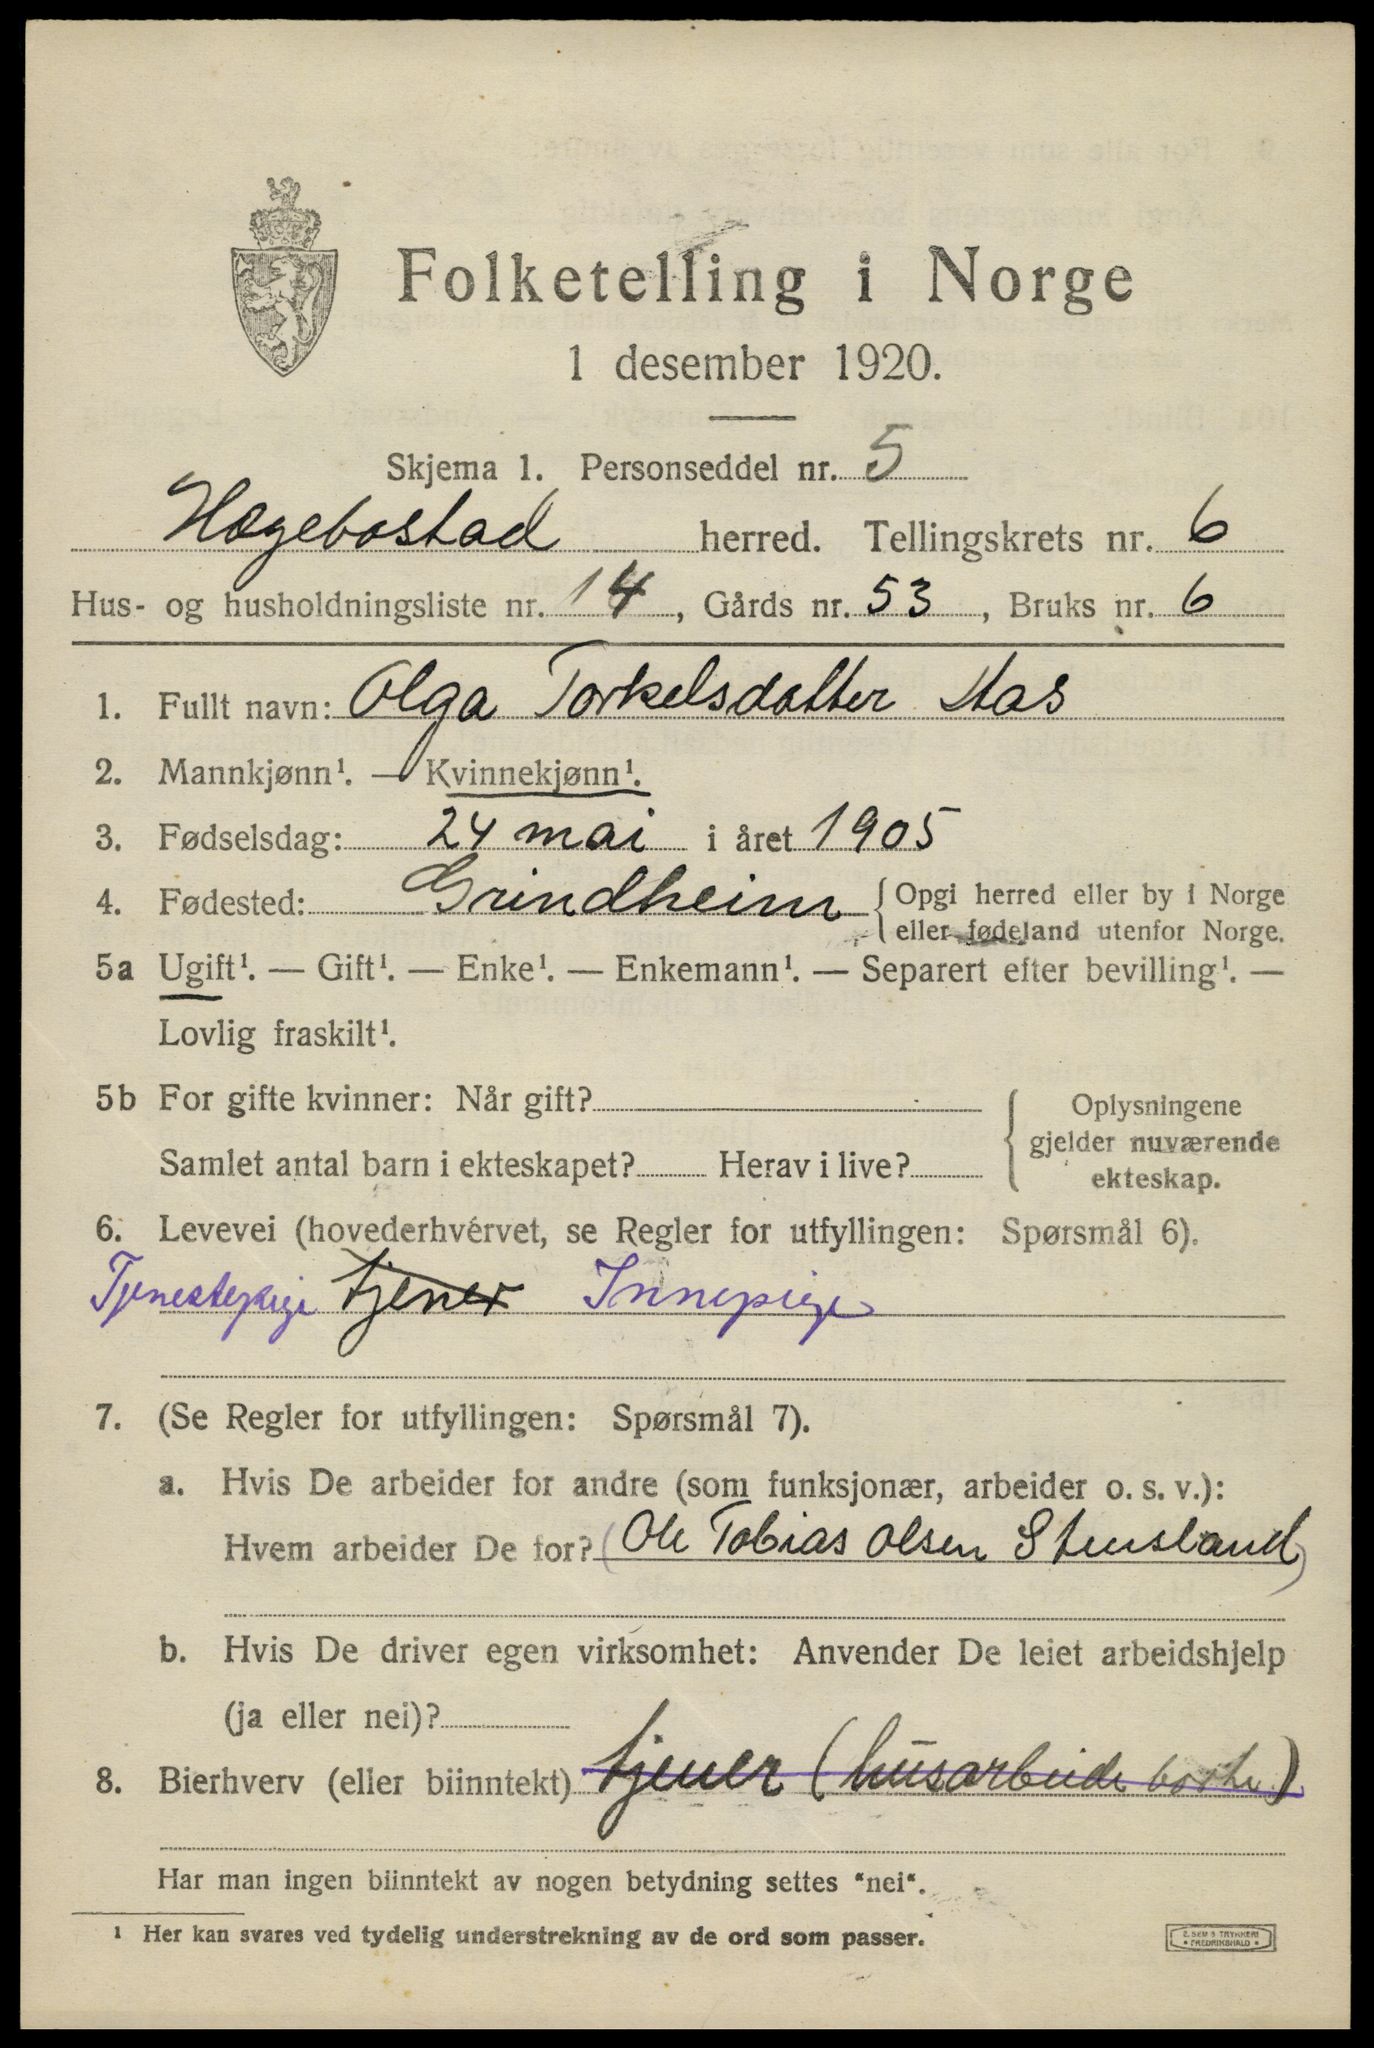 Folketelling i Norge
1 desember 1920.
Skjema 1. Personseddel nr. 5
Hægebostad herred. Tellingskrets nr. 6
Hus- og husholdningsliste nr. 14, Gårds nr. 53, Bruks nr. 6
1. Fullt navn: Olga Torkelsdatter Aas
2. Mannkjønn¹. — Kvinnekjønn¹.
3. Fødselsdag: 24 mai i året 1905
4. Fødested: Grindheim { Opgi herred eller by i Norge
eller fødeland utenfor Norge.
5a Ugift¹. — Gift¹. — Enke¹. — Enkemann¹. — Separert efter bevilling¹. —
Lovlig fraskilt¹.
5b For gifte kvinner: Når gift? { Oplysningene
gjelder nuværende
Samlet antal barn i ekteskapet? Herav i live?
ekteskap.
6. Levevei (hovederhvérvet, se Regler for utfyllingen: Spørsmål 6).
Tjenestepige tjener Innepige
7. (Se Regler for utfyllingen: Spørsmål 7).
a. Hvis De arbeider for andre (som funksjonær, arbeider o. s. v.):
Hvem arbeider De for? (Ole Tobias Olsen Stensland)
b. Hvis De driver egen virksomhet: Anvender De leiet arbeidshjelp
(ja eller nei)?
8. Bierhverv (eller biinntekt) tjener (husarbeide borte)
Har man ingen biinntekt av nogen betydning settes "nei".
¹ Her kan svares ved tydelig understrekning av de ord som passer.